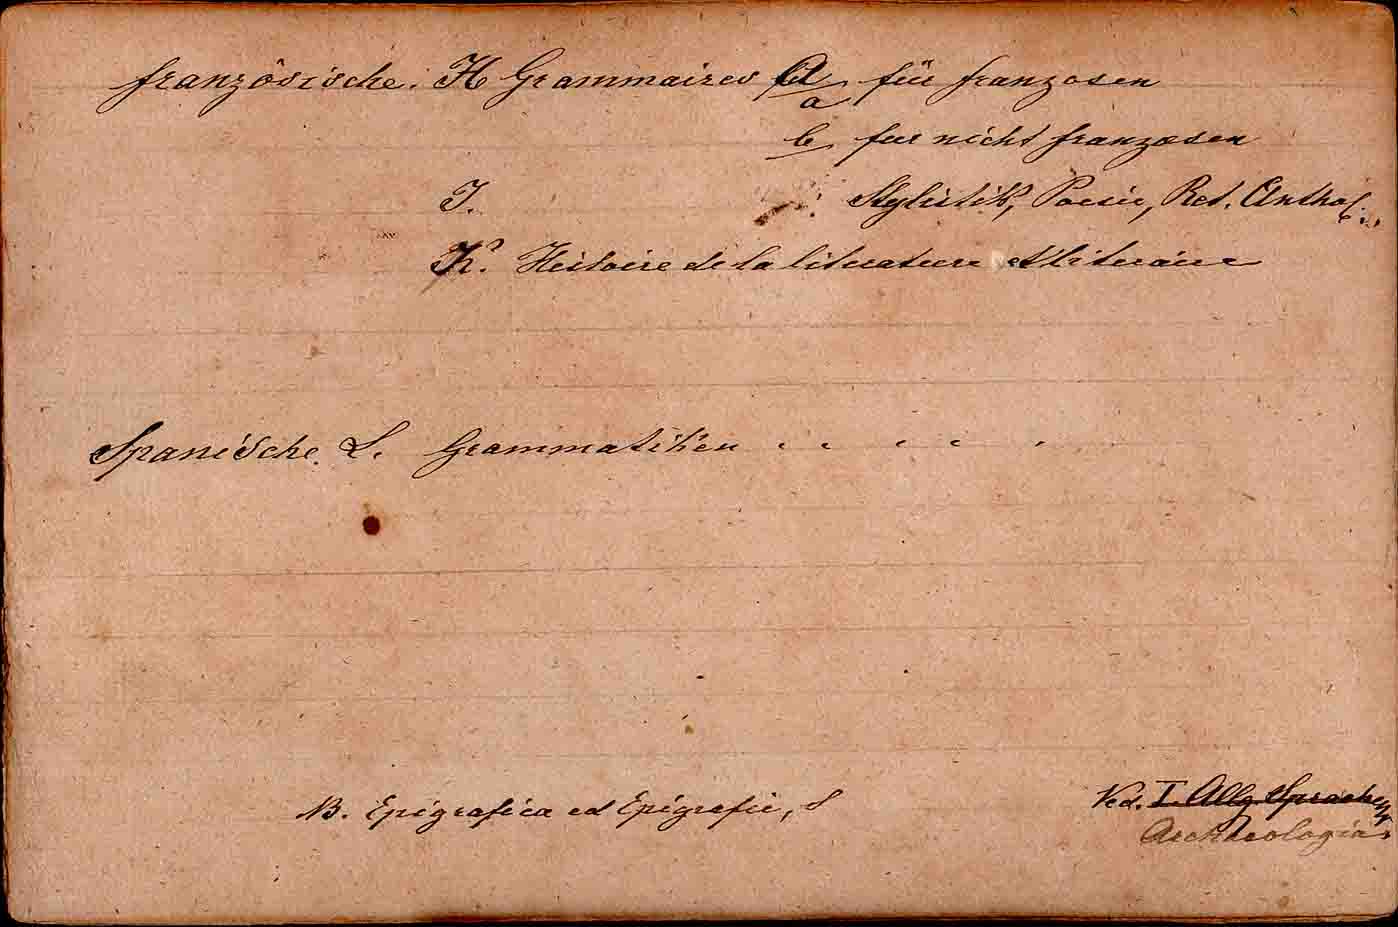 französische. H Grammaires a für franzosen
b fur nicht franzosen
I. Stylistik, Poesie, Ret. Anthol.
K. Histoire de la literature et literaire
Spanische. L. Grammatiken
NB. Epigrafica ed Epigrafie,
Ved. I. Allg Sprach
Archaeologia